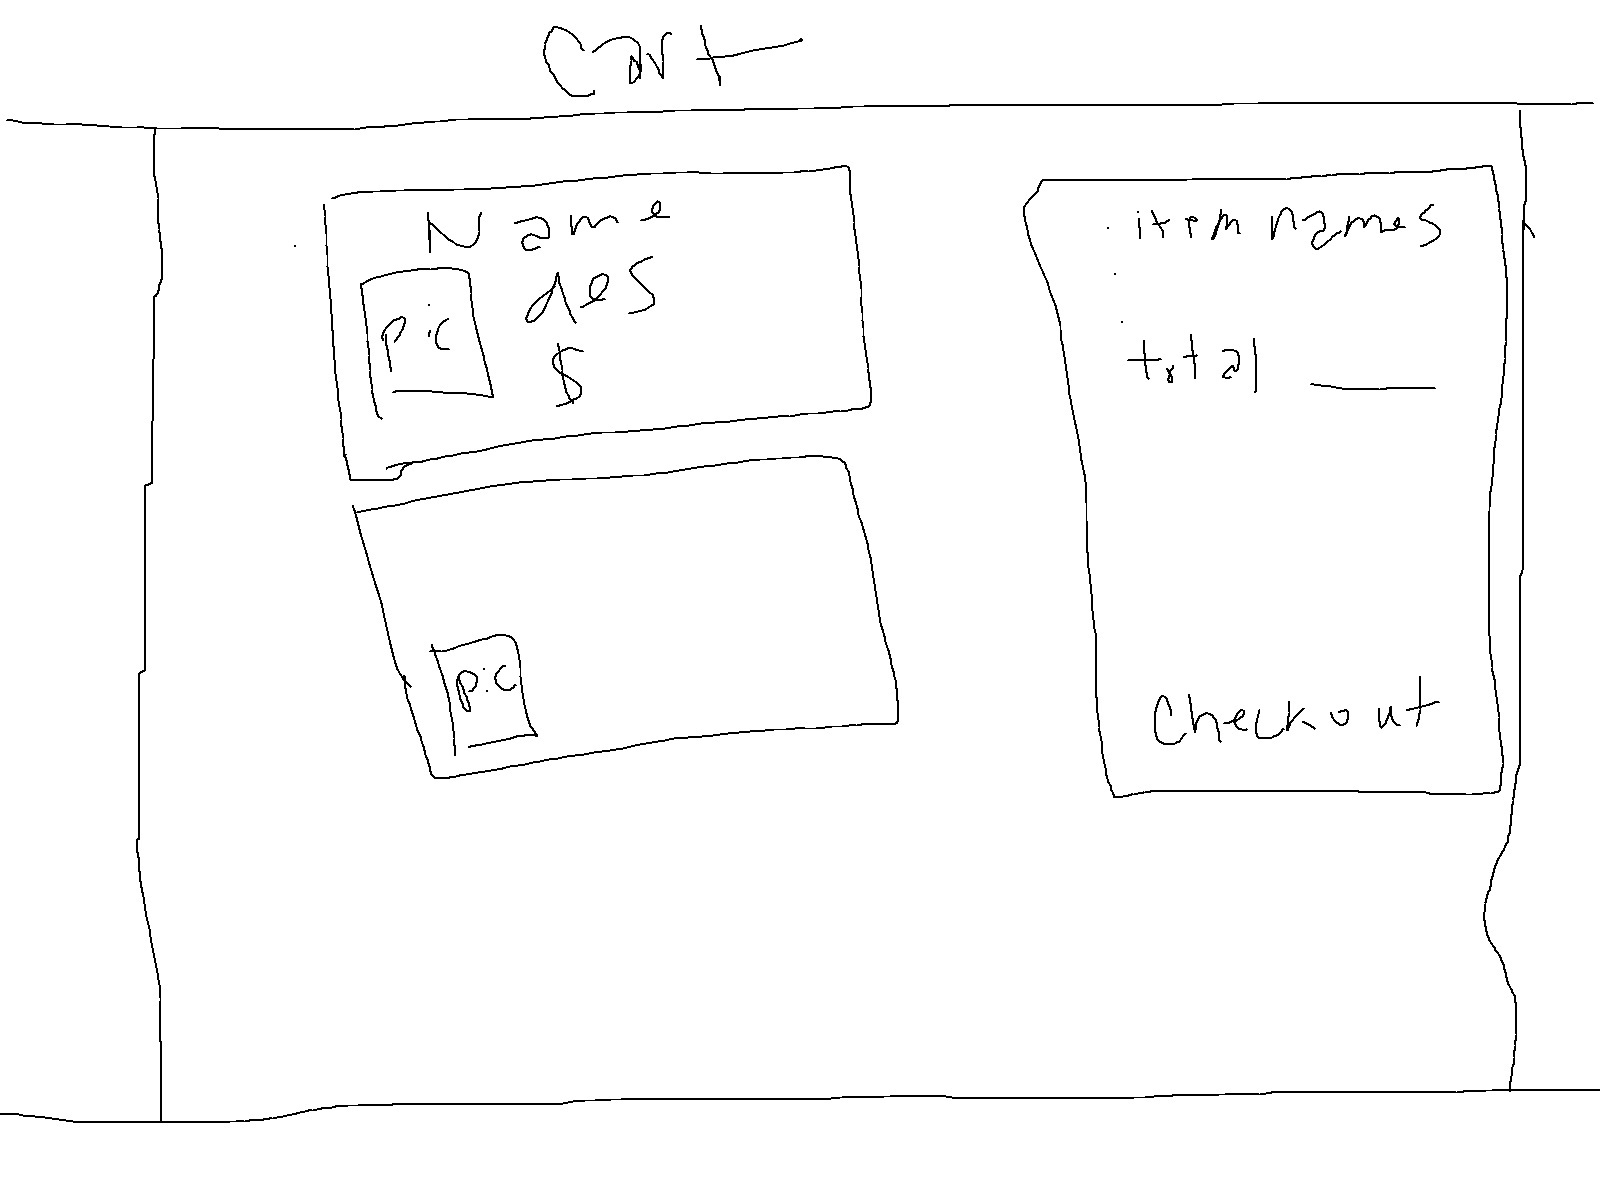 Cart
Name
des
pic
$
item names
total
pic
Checkout